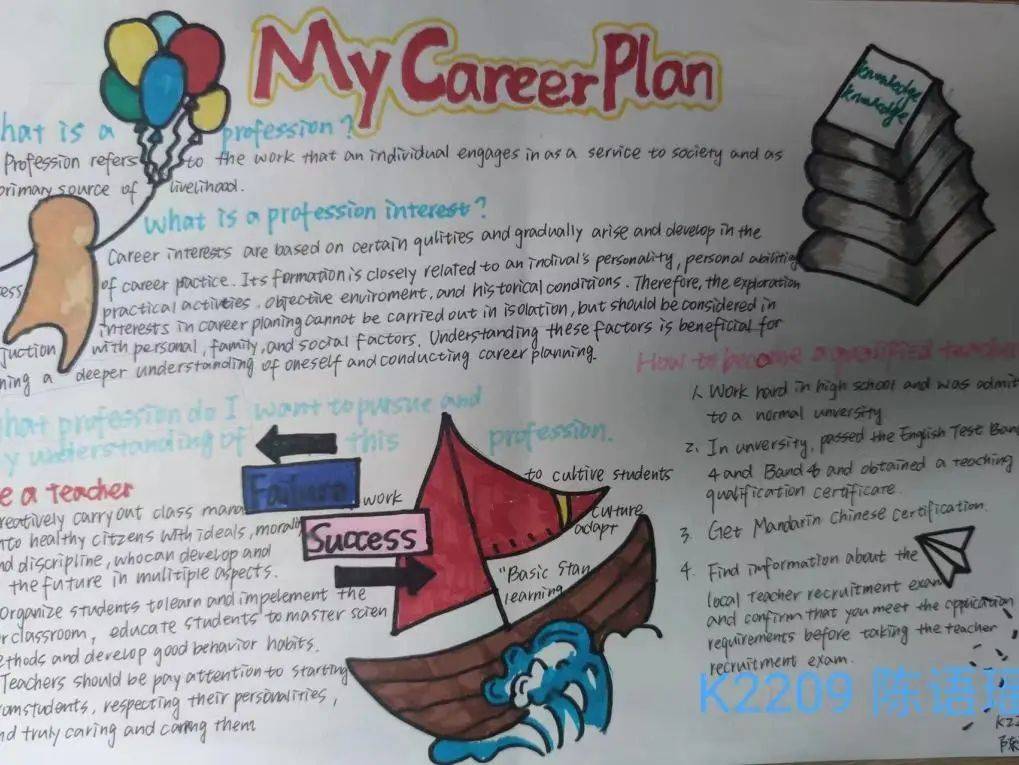 My Career Plan
hat is a profession?
Profession refers to the work that an individual engages in as a service to society and as
primary source of livelihood.
what is a profession interest?
Career interests are based on certain qulities and gradually arise and develop in the
of career practice. Its formation is closely related to an indival's personality, personal abilities
practical activties, objective enviroment, and historical conditions. Therefore, the exploration
interests in career planing cannot be carried out in isolation, but should be considered in
juction with personal, family, and social factors. Understanding these factors is beneficial for
ning a deeper understanding of oneself and conducting career planning.
hat profession do I want to pursue and
y understanding of this profession.
e a teacher
reatively carry out class mana work to cultive students
nto healthy citzens with ideals, morality culture
nd discripline, who can develop and adapt
the future in mulitiple aspects.
Organize students to learn and impelement the "Basic Stan
r classroom, educate students to master scien learning
ethods and develop good behavior habits.
Teachers should be pay attention to starting
om students, respecting their personalities,
nd truly caring and caring them
Failure
Success
knowledge
knowledge
How to become a qualified teacher
1. Work hard in high school and was admit
to a normal unversity
2. In unversity, passed the English Test Band
4 and Band 6 and obtained a teaching
qualification certificate.
3. Get Mandarin Chinese Certification.
4. Find information about the
local teacher recruitment exam
and confirm that you meet the application
requirements before taking the teacher
recruitment exam.
K2209 陈语瑶
K22
陈